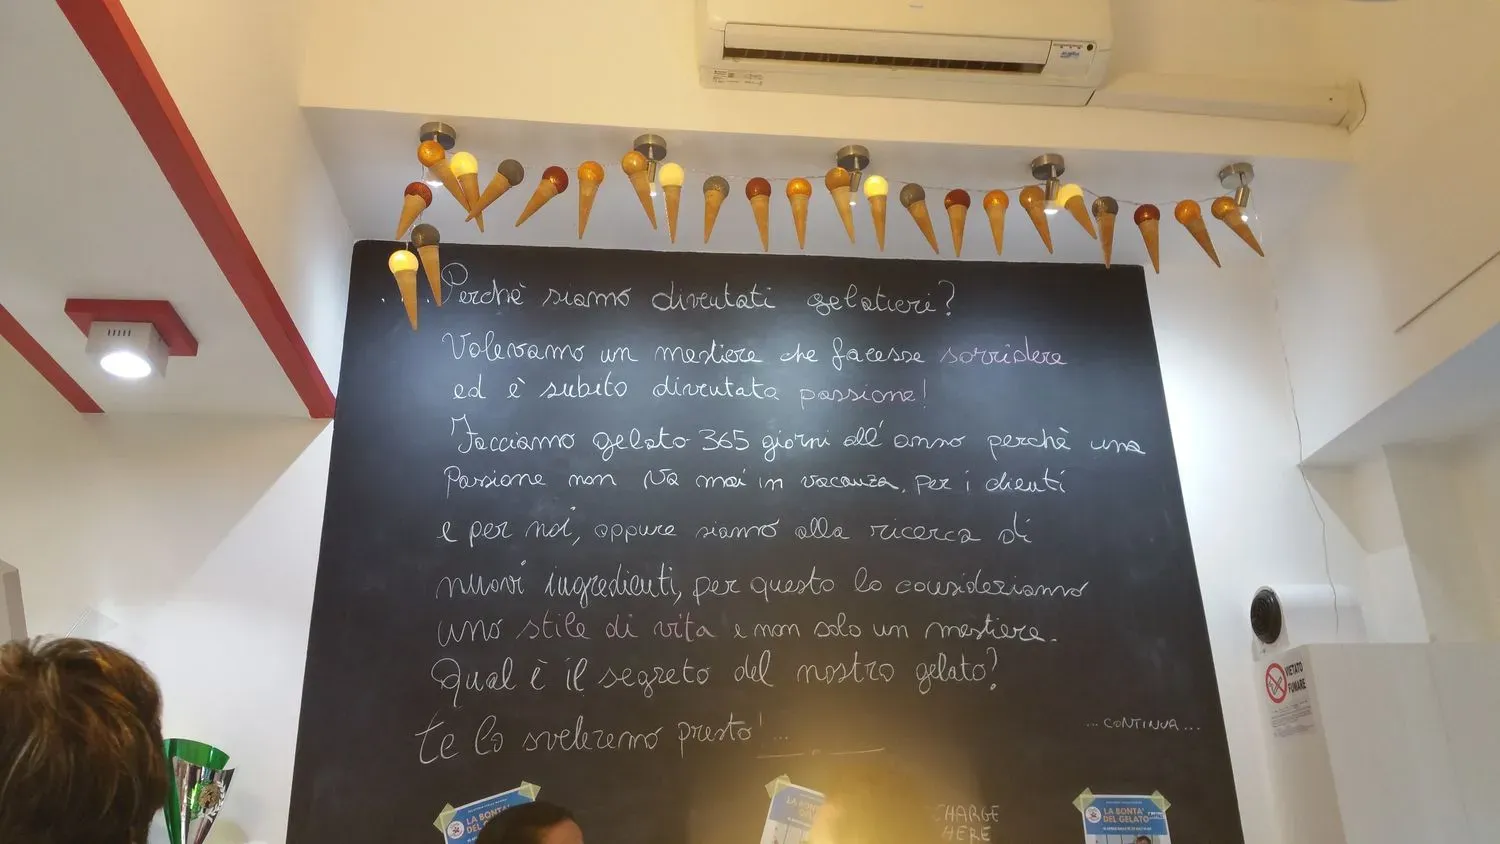 ...Perchè siamo diventati gelatieri?
Volevamo un mestiere che facesse sorridere
ed è subito diventata passione!
Facciamo gelato 365 giorni all'anno perchè una
Passione non va mai in vacanza, per i clienti
e per noi, oppure siamo alla ricerca di
nuovi ingredienti, per questo lo consideriamo
uno stile di vita e non solo un mestiere.
Qual è il segreto del nostro gelato?
te lo sveleremo presto!...
...CONTINUA...
VIETATO
FUMARE
LA BONTA'
DEL GELATO
LA BONTA'
CHARGE
HERE
LA BONTA'
DEL GELATO